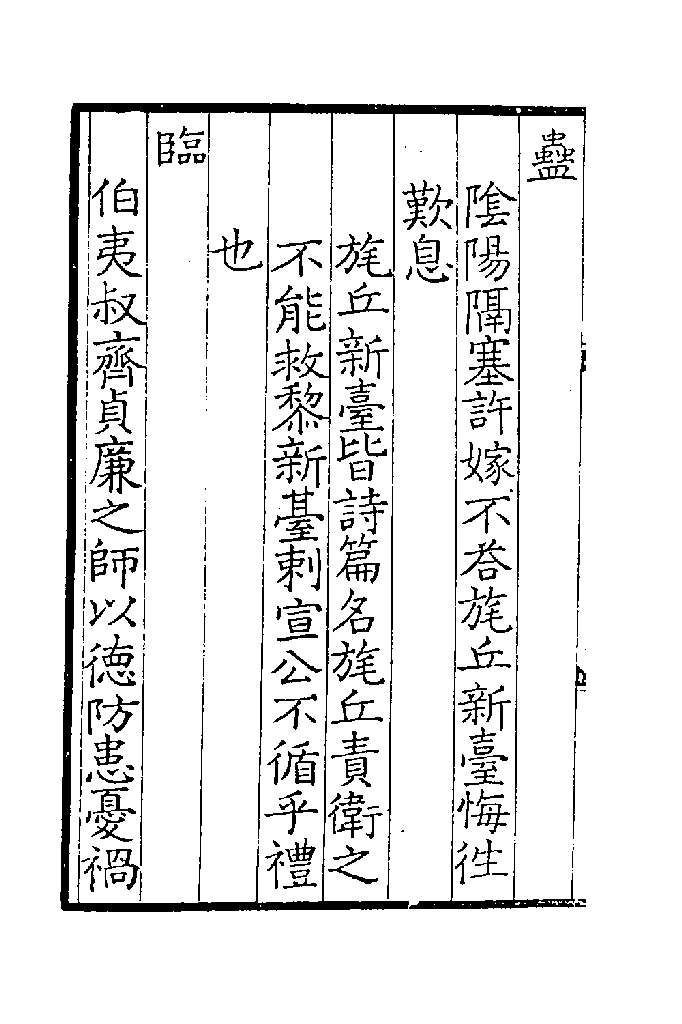 蠱
陰陽隔塞許嫁不荅旄丘新臺悔徃
歎息
旄丘新臺皆詩篇名旄丘責衛之
不能救黎新臺刺宣公不循乎禮
也
臨
伯夷叔齊貞廉之師以徳防患憂禍